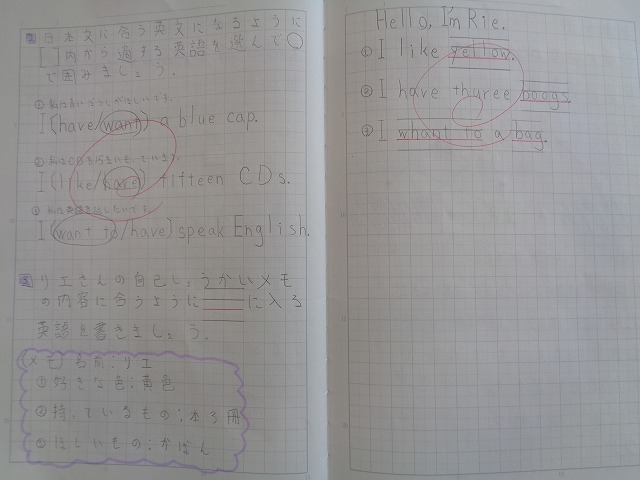 2 日本文に合う英文になるように
[ ]内から適する英語を選んで○
で囲みましょう。
① 私は青いぼうしがほしいです。
I (have/want) a blue cap.
② 私はCDを15まいもっています。
I (like/have) fifteen CDs.
③ 私は英語を話したいです。
I (want to/have) speak English.
3 リエさんの自己しょうかいメモ
の内容に合うように に入る
英語を書きましょう。
(メモ) 名前:リエ
①好きな色:黄色
②持っているもの:本3冊
③ほしいもの:かばん
Hello, I'm Rie.
① I like yellow.
② I have thuree boogs.
③ I whant to a bag.